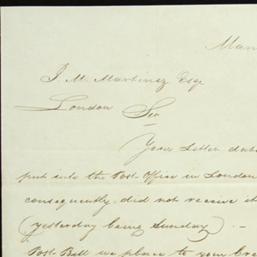 Man
J. M. Martinez Esq
London
Sir
Your Letter date
put into the Post Office in London
consequently did not receive it
(yesterday being Sunday). —
Post Bill we place to your Cre